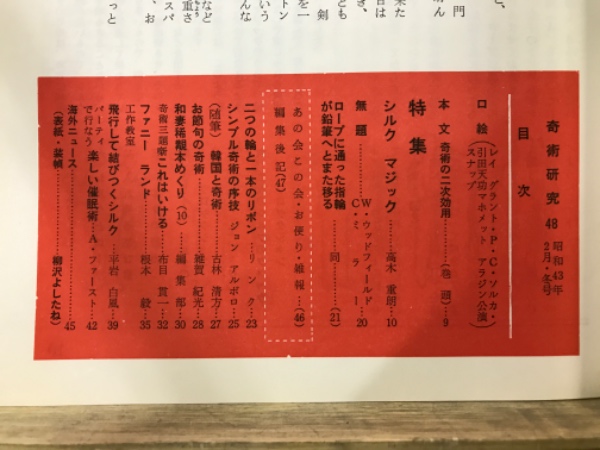 門
ん
来た
日は
き、
ども
剣
を一
トン
いう
んな
など
重さ
スパ
、お
っと
奇術研究 48 昭和43年 2月・冬号
目次
口絵(レイ グラント・P・C・ソルカ・
引田天功マホメット アラジン公演
スナップ)
本文 奇術の二次効用………(巻頭)…9
特集
シルク マジック………高木重朗…10
無題……W・ウッドフィールド C・ミラー…20
ロープに通った指輪
が鉛筆へとまた移る………同…(21)
あの会この会・お便り・雑報…(46)
編集後記(47)
二つの輪と一本のリボン…リンク…23
シンプル奇術の序技 ジョン アルボロ…25
(随筆) 韓国と奇術……古林 清方…27
お節句の奇術……雑賀 紀光…28
和妻稀覯本めくり(10)…編集部…30
奇術三題噺これはいける…布目 貫一…32
ファニー ランド……根本 毅…35
工作教室
飛行して結びつくシルク…平岩 白風…39
パーティで行なう 楽しい催眠術…A・ファースト…42
海外ニュース………45
(表紙・装幀………柳沢よしたね)